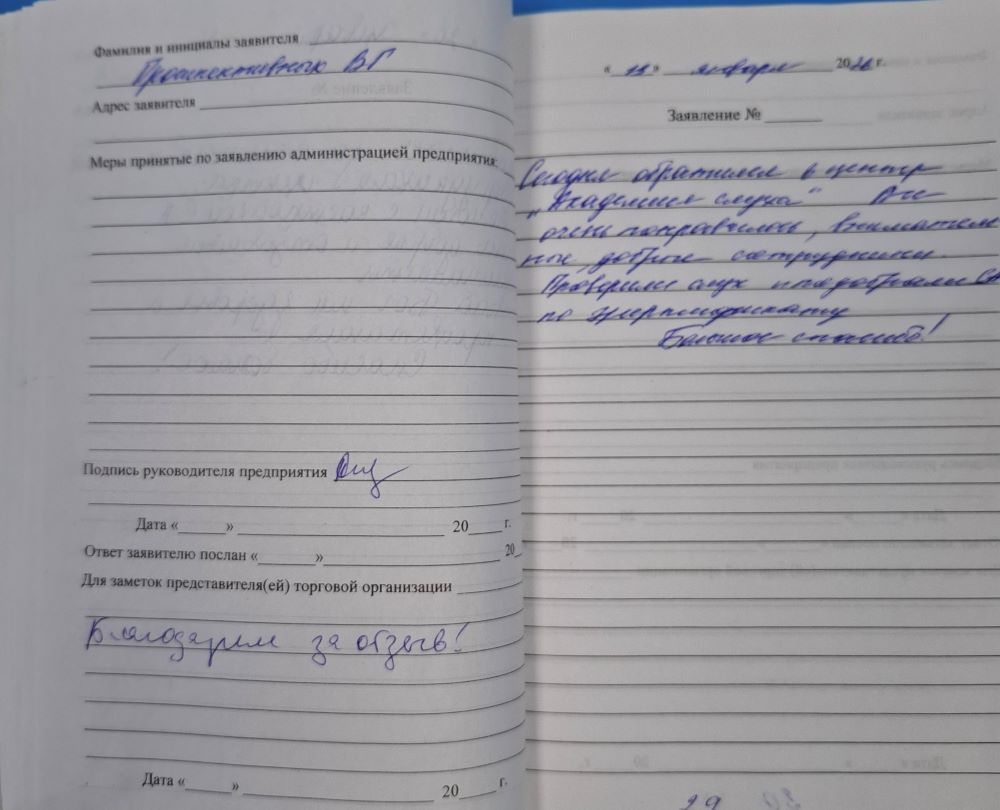 Фамилия и инициалы заявителя
ВГ
Адрес заявителя
Меры принятые по заявлению администрацией предприятия:
Подпись руководителя предприятия
Дата « » 20 г.
Ответ заявителю послан « » 20
Для заметок представителя(ей) торговой организации
Благодарим за отзыв!
Дата « » 20 г.
« » января 20 г.
Заявление №
Сегодня обратился в центр
„Академия слуха“
очень понравилось, вниматель
ные, добрые сотрудники.
Проверили слух и подобрали СА
по сертификату
Большое спасибо!
29